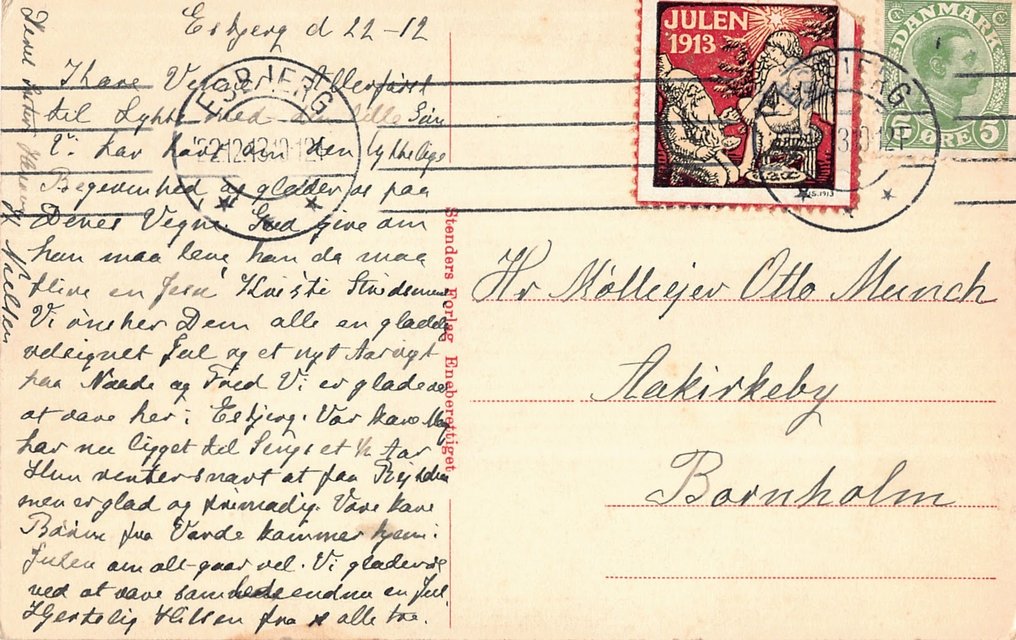 Esbjerg d 22-12
Kære Venner Allerførst
til Lykke med den lille Søn
I har havt den den lykkelige
Begivenhed og glæder os paa
Deres Vegne. Gud give om
han maa leve han da maa
blive en Jesu Kristi Stridsmand
Vi ønsker Dem alle en glædelig
velsignet Jul og et nyt Aar rigt
paa Naade og Fred Vi er glade ved
at være her i Esbjerg. Vor kære
har nu ligget til Sengs et ½ Aar
Hun venter snart at faa Rejselov
men er glad og frimodig. Vore kære
Børn fra Varde kommer hjem i
Julen om alt gaar vel. Vi glæder os
ved at være sammen endnu en Jul
Hjertelig Hilsen fra os alle tre.
Nielsen
ESBJERG
22.12.13.10-12F
JULEN
1913
DANMARK
5 ØRE 5
ESBJERG
13.10-12F
Stenders Forlag Eneberettiget
Hr Mølleejer Otto Munch
Aakirkeby
Bornholm